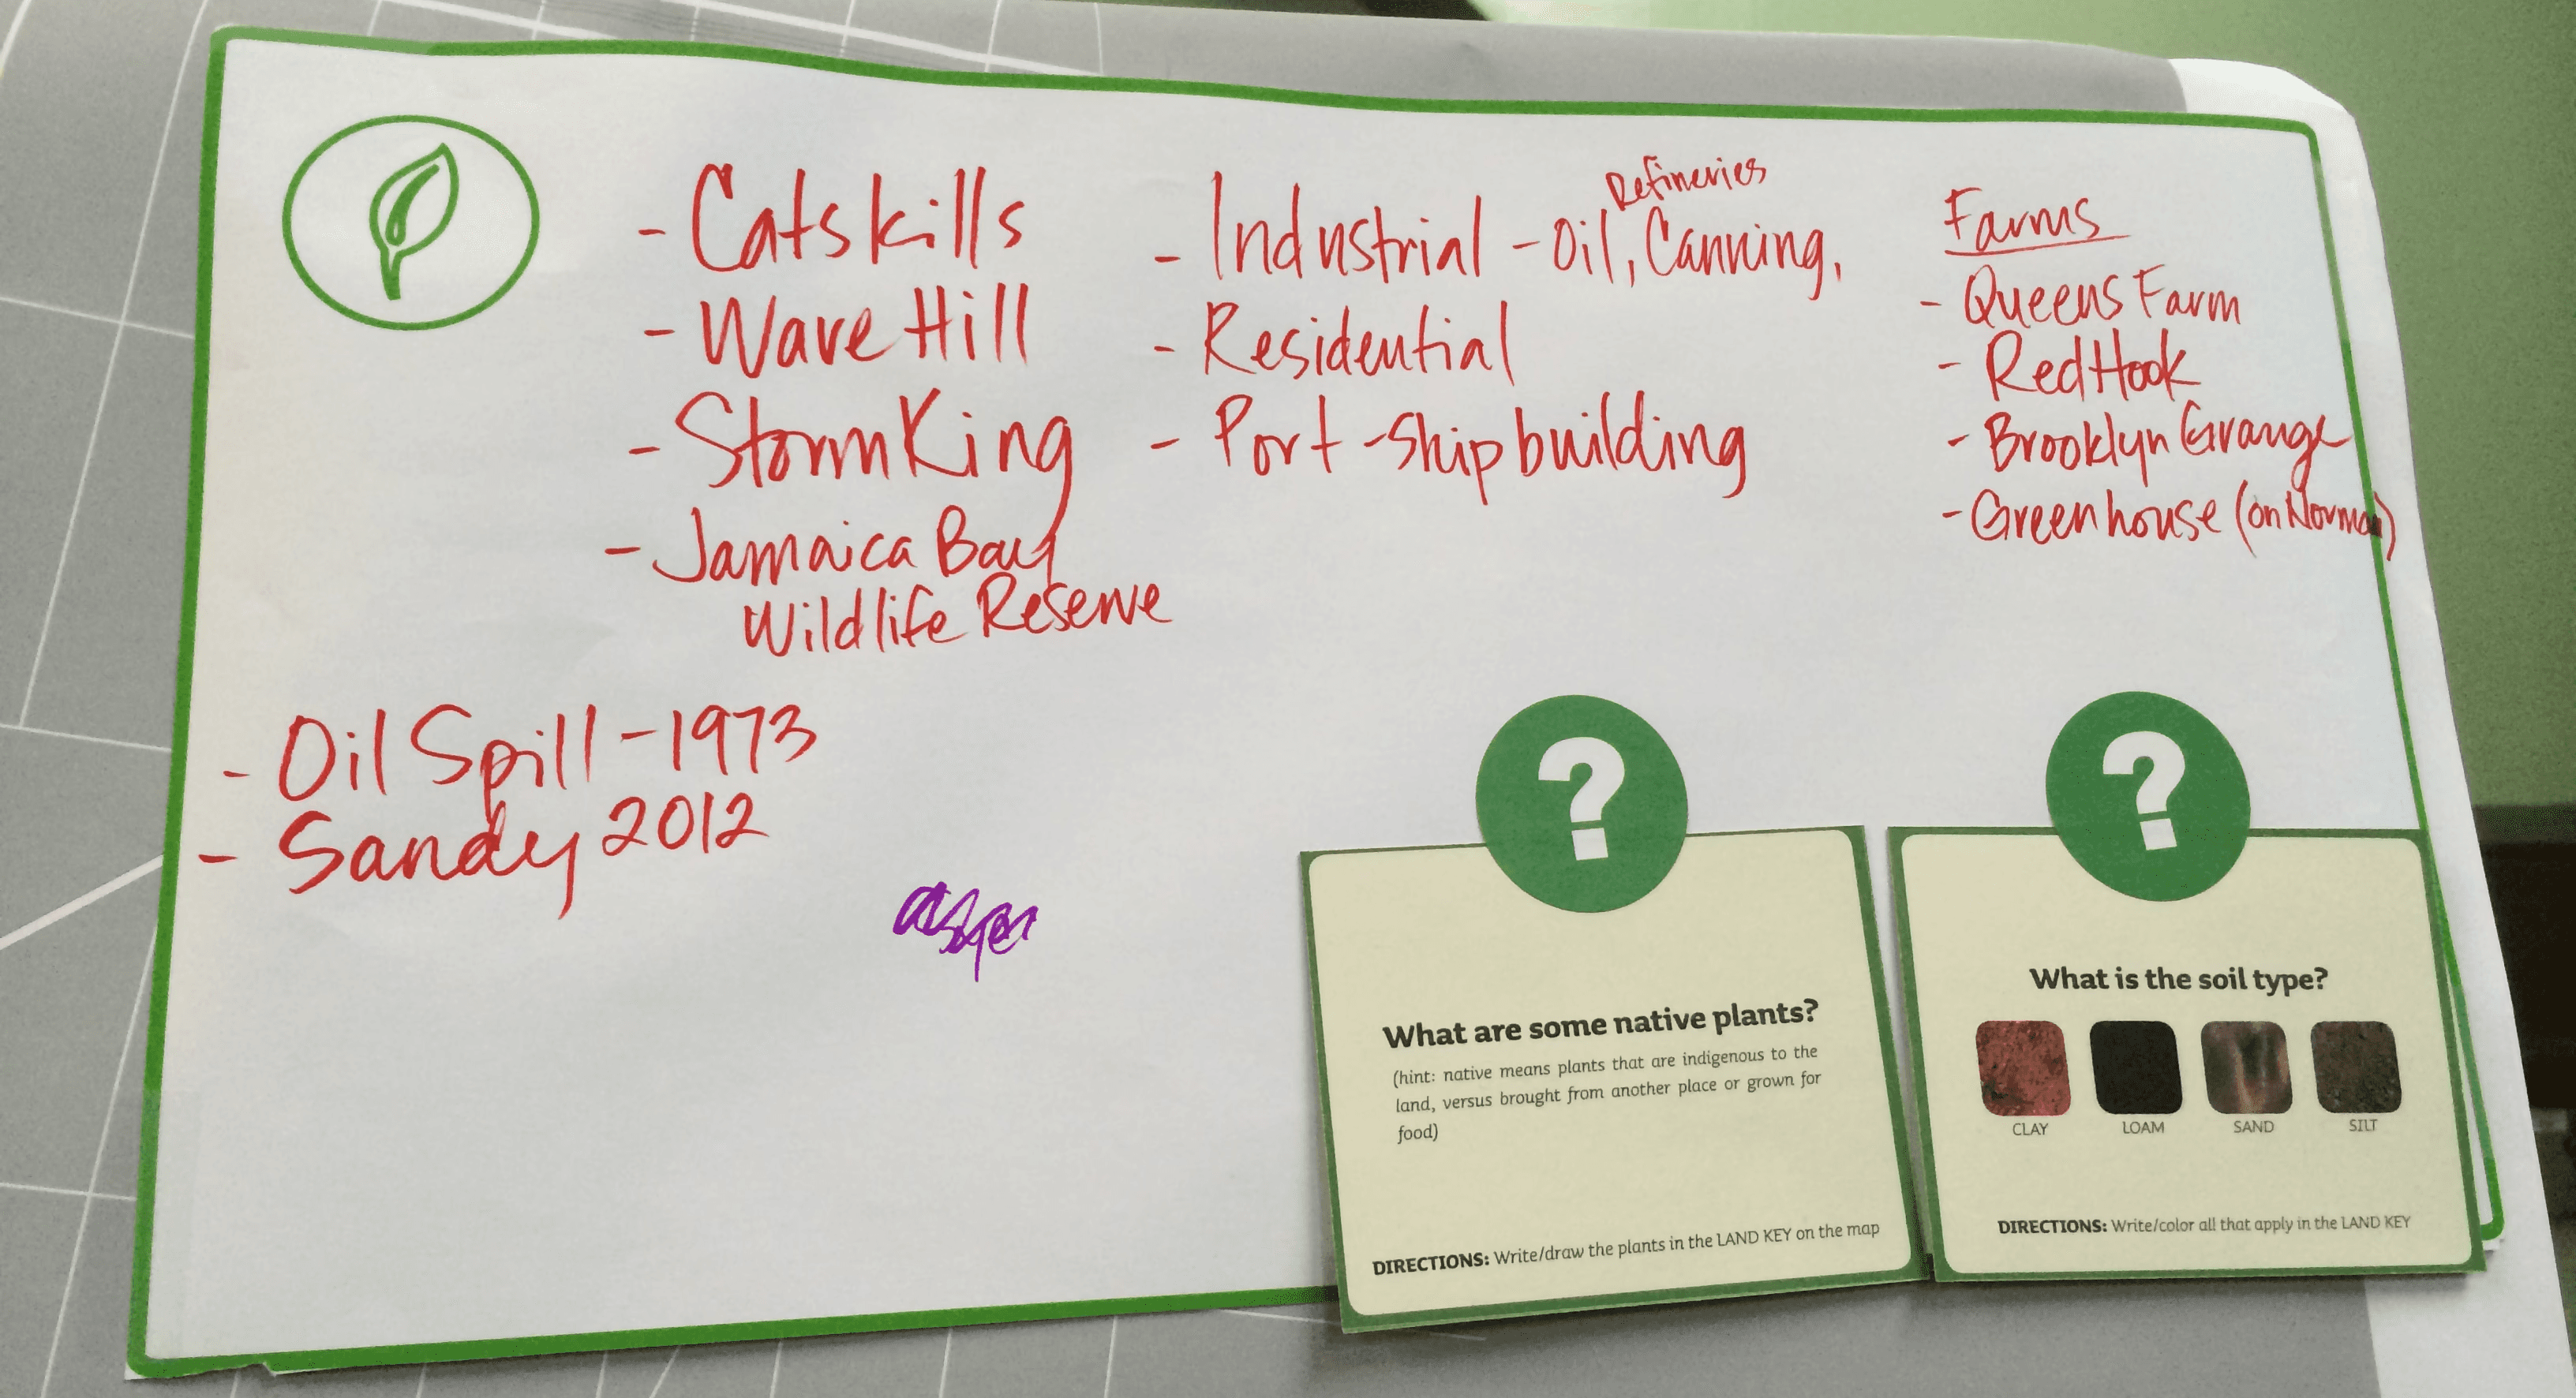 - Catskills
- Wave Hill
- Storm King
- Jamaica Bay
Wildlife Reserve
Refineries
- Industrial - Oil, Canning,
- Residential
- Port - Ship building
Farms
- Queens Farm
- Red Hook
- Brooklyn Grange
- Greenhouse (on Norman)
- Oil Spill - 1973
- Sandy 2012
?
What are some native plants?
(hint: native means plants that are indigenous to the
land, versus brought from another place or grown for
food)
DIRECTIONS: Write/draw the plants in the LAND KEY on the map
?
What is the soil type?
CLAY LOAM SAND SILT
DIRECTIONS: Write/color all that apply in the LAND KEY